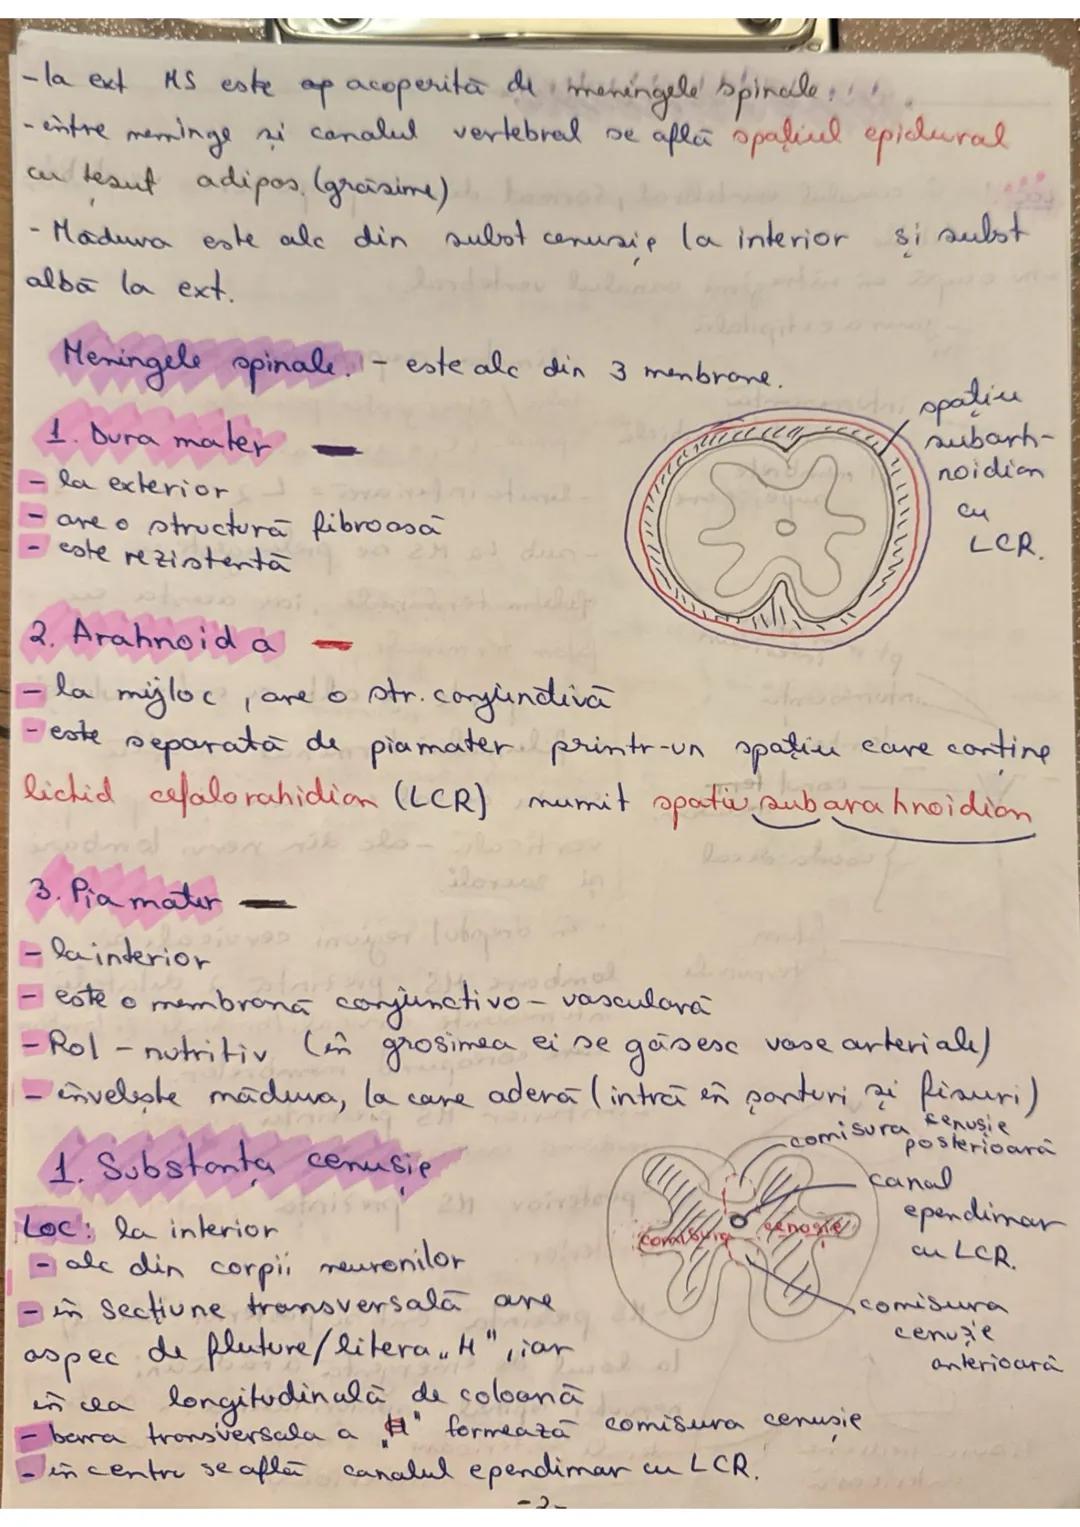 -la ext MS este ap acoperită de meningele spinale.
-între meninge și canalul vertebral se află spațiul epidural
cu țesut adipos (grăsime)
- Măduva este alc din subst cenușie la interior și subst
albă la ext.
Meningele spinale. - este alc din 3 menbrane.
1. Dura mater
- la exterior
- are o structură fibroasă
- este rezistentă
spațiu
subarh-
noidian
cu
LCR.
2. Arahnoida
- la mijloc, are o str. conjunctivă
- este separată de piamater printr-un spațiu care conține
lichid cefalorahidian (LCR) numit spatiu subarahnoidian
3. Pia mater
- la interior
- este o membrană conjunctivo-vasculară
- Rol - nutritiv (în grosimea ei se găsesc vase arteriale)
- învelește măduva, la care aderă (intră în șanturi și fisuri)
1. Substanța cenușie
Loc: la interior
- alc din corpii neuronilor
- în secțiune transversală are
aspec de fluture/litera „H", iar
în cea longitudinală de coloană
- barra transversala a „H" formează comisura cenușie
- în centru se află canalul ependimar cu LCR.
comisura cenușie
posterioară
canal
ependimar
cu LCR.
comisura cenușie
comisura
cenușie
anterioară
-2-